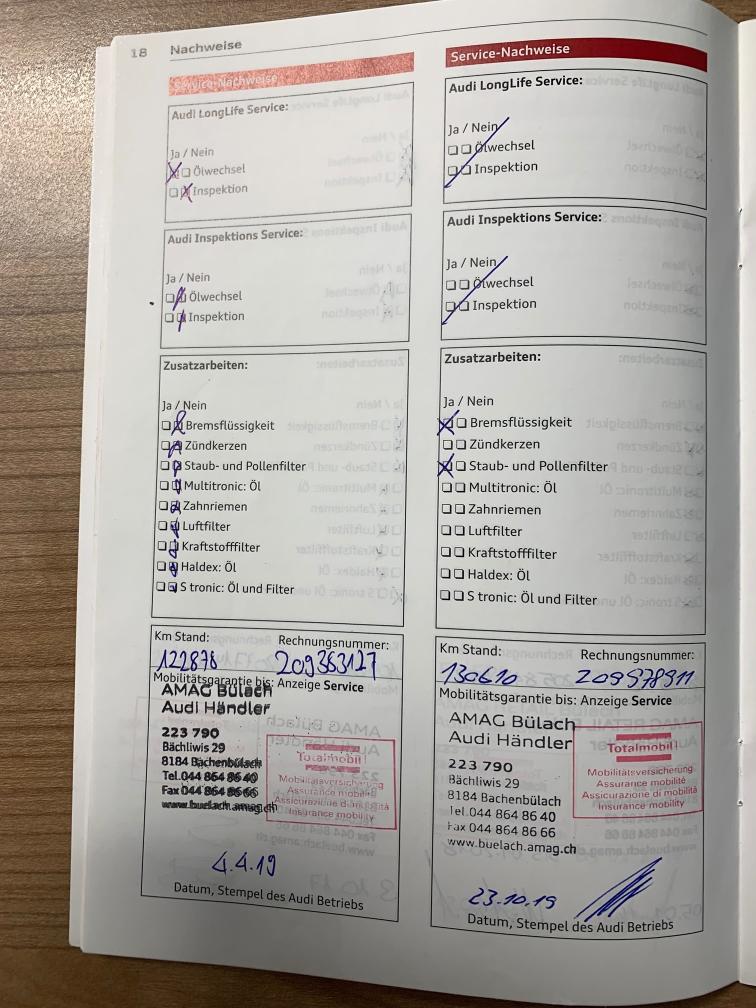 18 Nachweise
Service-Nachweise
Audi LongLife Service:
Ja / Nein
Ölwechsel
Inspektion
Audi Inspektions Service:
Ja / Nein
Ölwechsel
Inspektion
Zusatzarbeiten:
Ja / Nein
Bremsflüssigkeit
Zündkerzen
Staub- und Pollenfilter
Multitronic: Öl
Zahnriemen
Luftfilter
Kraftstofffilter
Haldex: Öl
S tronic: Öl und Filter
Km Stand: Rechnungsnummer:
122878 209363127
Mobilitätsgarantie bis: Anzeige Service
AMAG Bülach
Audi Händler
223 790
Bächliwis 29
8184 Bachenbülach
Tel.044 864 86 40
Fax 044 864 86 66
www.buelach.amag.ch
Totalmobil!
Mobilitätsversicherung
Assurance mobilité
Assicurazione di mobilità
Insurance mobility
4.4.19
Datum, Stempel des Audi Betriebs
Service-Nachweise
Audi LongLife Service:
Ja / Nein
Ölwechsel
Inspektion
Audi Inspektions Service:
Ja / Nein
Ölwechsel
Inspektion
Zusatzarbeiten:
Ja / Nein
Bremsflüssigkeit
Zündkerzen
Staub- und Pollenfilter
Multitronic: Öl
Zahnriemen
Luftfilter
Kraftstofffilter
Haldex: Öl
S tronic: Öl und Filter
Km Stand: Rechnungsnummer:
130610 209578911
Mobilitätsgarantie bis: Anzeige Service
AMAG Bülach
Audi Händler
223 790
Bächliwis 29
8184 Bachenbülach
Tel.044 864 86 40
Fax 044 864 86 66
www.buelach.amag.ch
Totalmobil!
Mobilitätsversicherung
Assurance mobilité
Assicurazione di mobilità
Insurance mobility
23.10.19
Datum, Stempel des Audi Betriebs